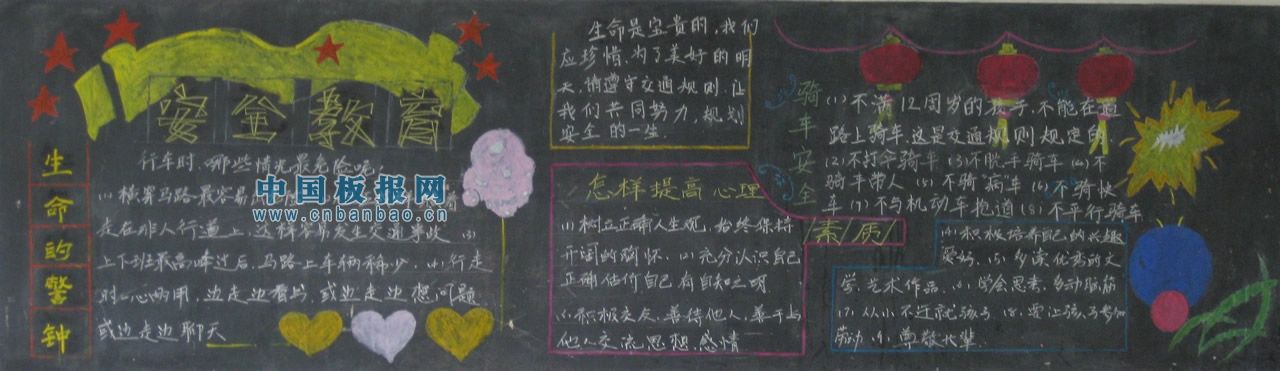 安全教育
生命的警钟
行车时,哪些情况最危险呢
(1)横穿马路最容易
走在非人行道上,这样容易发生交通事故 (3)
上下班最高峰过后,马路上车辆稀少 (4)行走
时一心两用,边走边看书,或边走边想问题
或边走边聊天
中国板报网
www.cnbanbao.cn
生命是宝贵的,我们
应珍惜,为了美好的明
天,请遵守交通规则,让
我们共同努力,规划
安全的一生.
怎样提高心理
素质
(1)树立正确人生观,始终保持
开阔的胸怀. (2)充分认识自己
正确估价自己有自知之明
(3)积极交友,善待他人,善于与
他人交流思想.感情
(4)积极培养自己的兴趣
爱好. (5)多读优秀的文
学.艺术作品. (6)学会思考,多动脑筋
(7)从小不迁就孩子 (8)要让孩子参加
劳动 (9)尊敬长辈.
骑车安全
(1)不满12周岁的孩子,不能在道
路上骑车.这是交通规则规定的
(2)不打伞骑车 (3)不脱手骑车 (4)不
骑车带人 (5)不骑"病"车 (6)不骑快
车 (7)不与机动车抢道 (8)不平行骑车